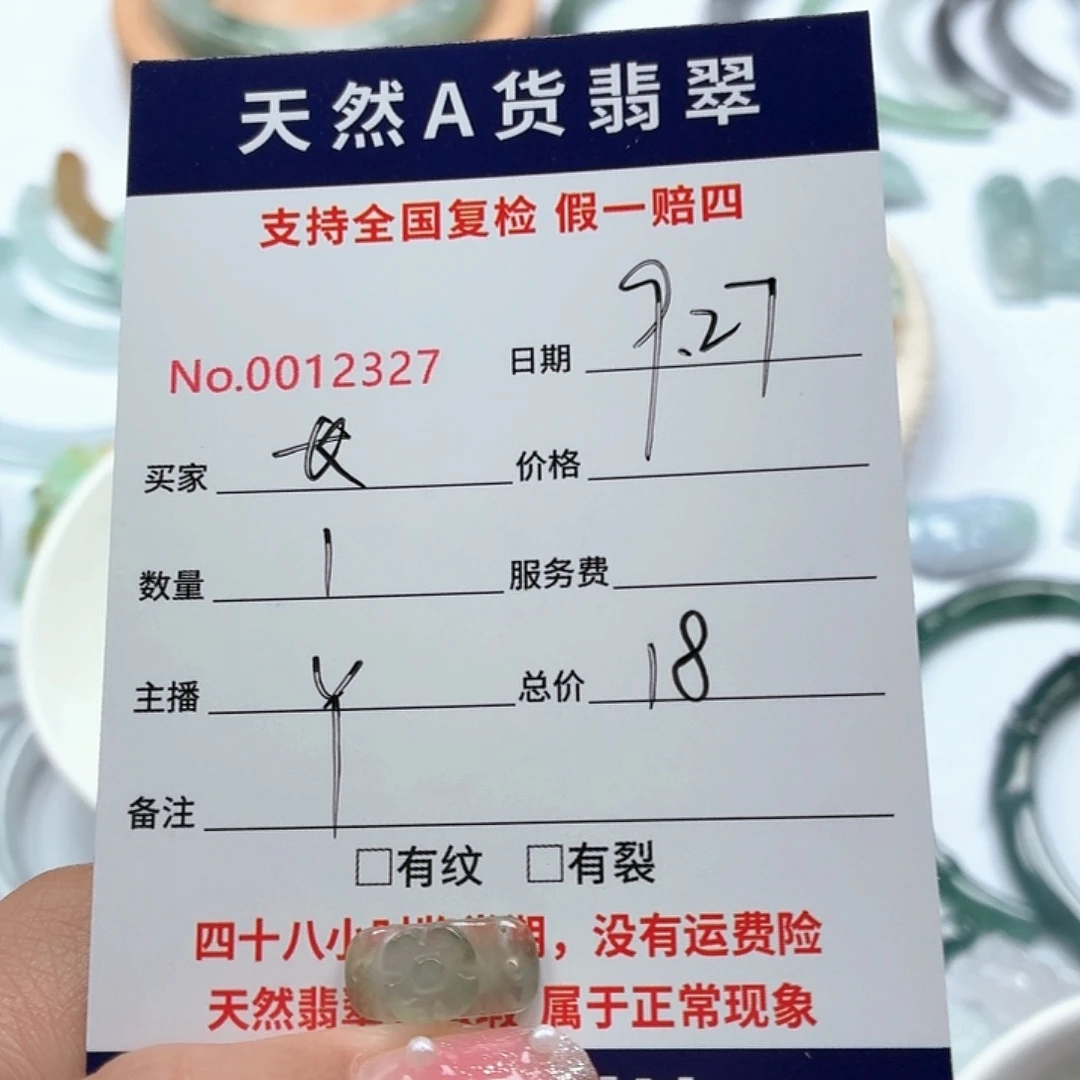 天然A货翡翠
支持全国复检 假一赔四
No.0012327 日期 9.27
买家 价格
数量 1 服务费
主播 Y 总价 18
备注
□有纹 □有裂
四十八小 期，没有运费险
天然翡翠 属于正常现象